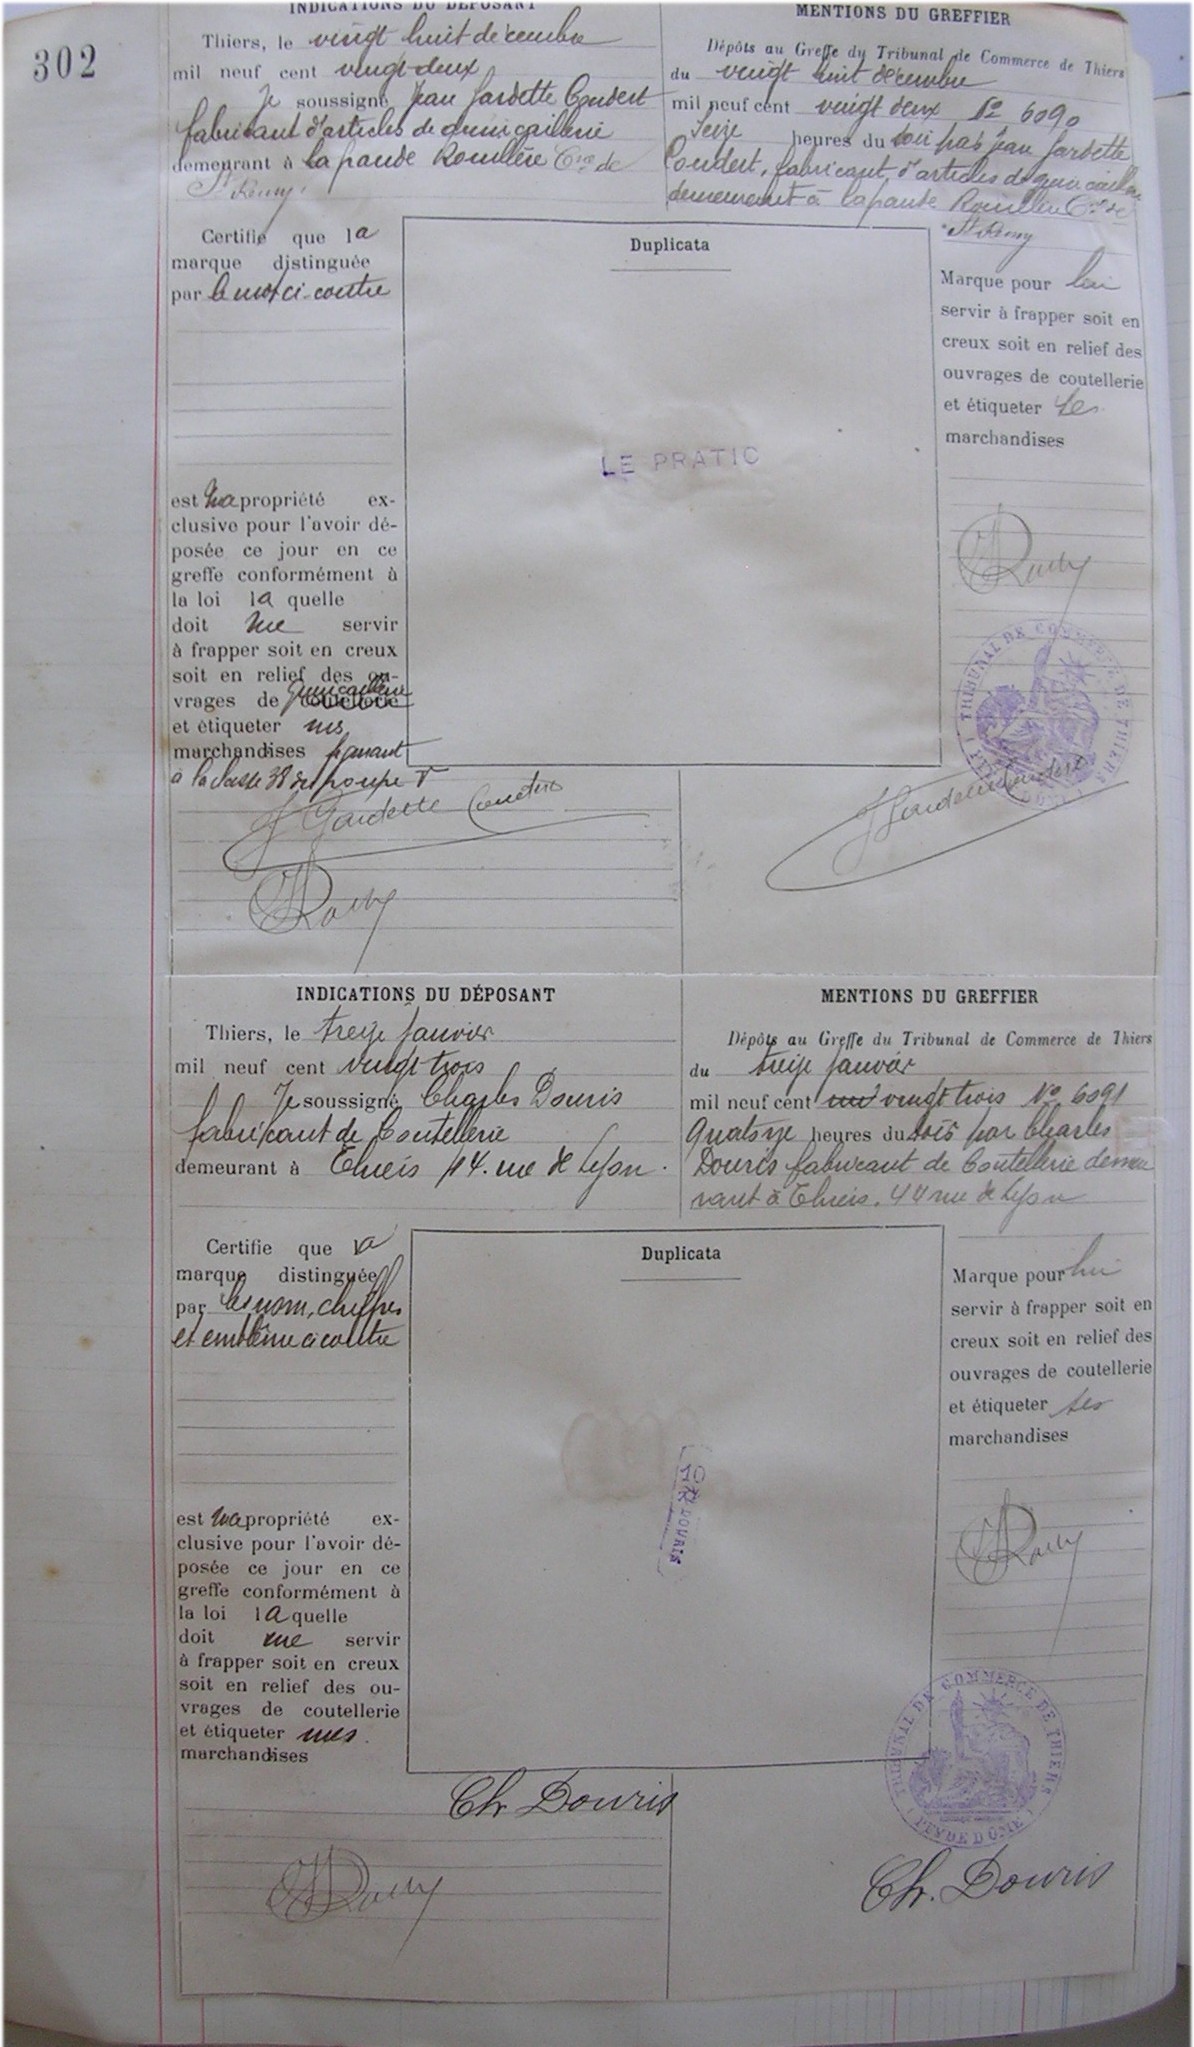 302
INDICATIONS DU DÉPOSANT
Thiers, le vingt huit décembre
mil neuf cent vingt-deux
Je soussigné Jean Gardette Coudert
fabricant d'articles de quincaillerie
demeurant à la paude Rouillère Cne de
St Rémy.
MENTIONS DU GREFFIER
Dépôts au Greffe du Tribunal de Commerce de Thiers
du vingt huit décembre
mil neuf cent vingt deux No 6090
Seize heures du soir par Jean Gardette
Coudert, fabricant d'articles de quincaillerie
demeurant à la paude Cne de
St Rémy
Certifie que la
marque distinguée
par le mot ci-contre
est ma propriété ex-
clusive pour l'avoir dé-
posée ce jour en ce
greffe conformément à
la loi laquelle
doit me servir
à frapper soit en creux
soit en relief des ou-
vrages de quincaillerie coutellerie
et étiqueter mes
marchandises
à la classe 38 du groupe V
Duplicata
LE PRATIC
Marque pour lui
servir à frapper soit en
creux soit en relief des
ouvrages de coutellerie
et étiqueter ses
marchandises
TRIBUNAL DE COMMERCE DE THIERS
J Gardette Coudert
J Gardette Coudert
INDICATIONS DU DÉPOSANT
Thiers, le treize Janvier
mil neuf cent vingt trois
Je soussigné Charles Douris
fabricant de Coutellerie
demeurant à Thiers 44. rue de Lyon.
MENTIONS DU GREFFIER
Dépôts au Greffe du Tribunal de Commerce de Thiers
du treize Janvier
mil neuf cent vingt trois No 6091
Quatorze heures du soir par Charles
Douris fabricant de Coutellerie demeu
rant à Thiers. 44 rue de Lyon
Certifie que la
marque distinguée
par les nom, chiffres
et emblème ci contre
est ma propriété ex-
clusive pour l'avoir dé-
posée ce jour en ce
greffe conformément à
la loi laquelle
doit me servir
à frapper soit en creux
soit en relief des ou-
vrages de coutellerie
et étiqueter mes
marchandises
Duplicata
DOURIS
Marque pour lui
servir à frapper soit en
creux soit en relief des
ouvrages de coutellerie
et étiqueter ses
marchandises
TRIBUNAL DE COMMERCE DE THIERS
(PUY DE DÔME)
Ch Douris
Ch. Douris